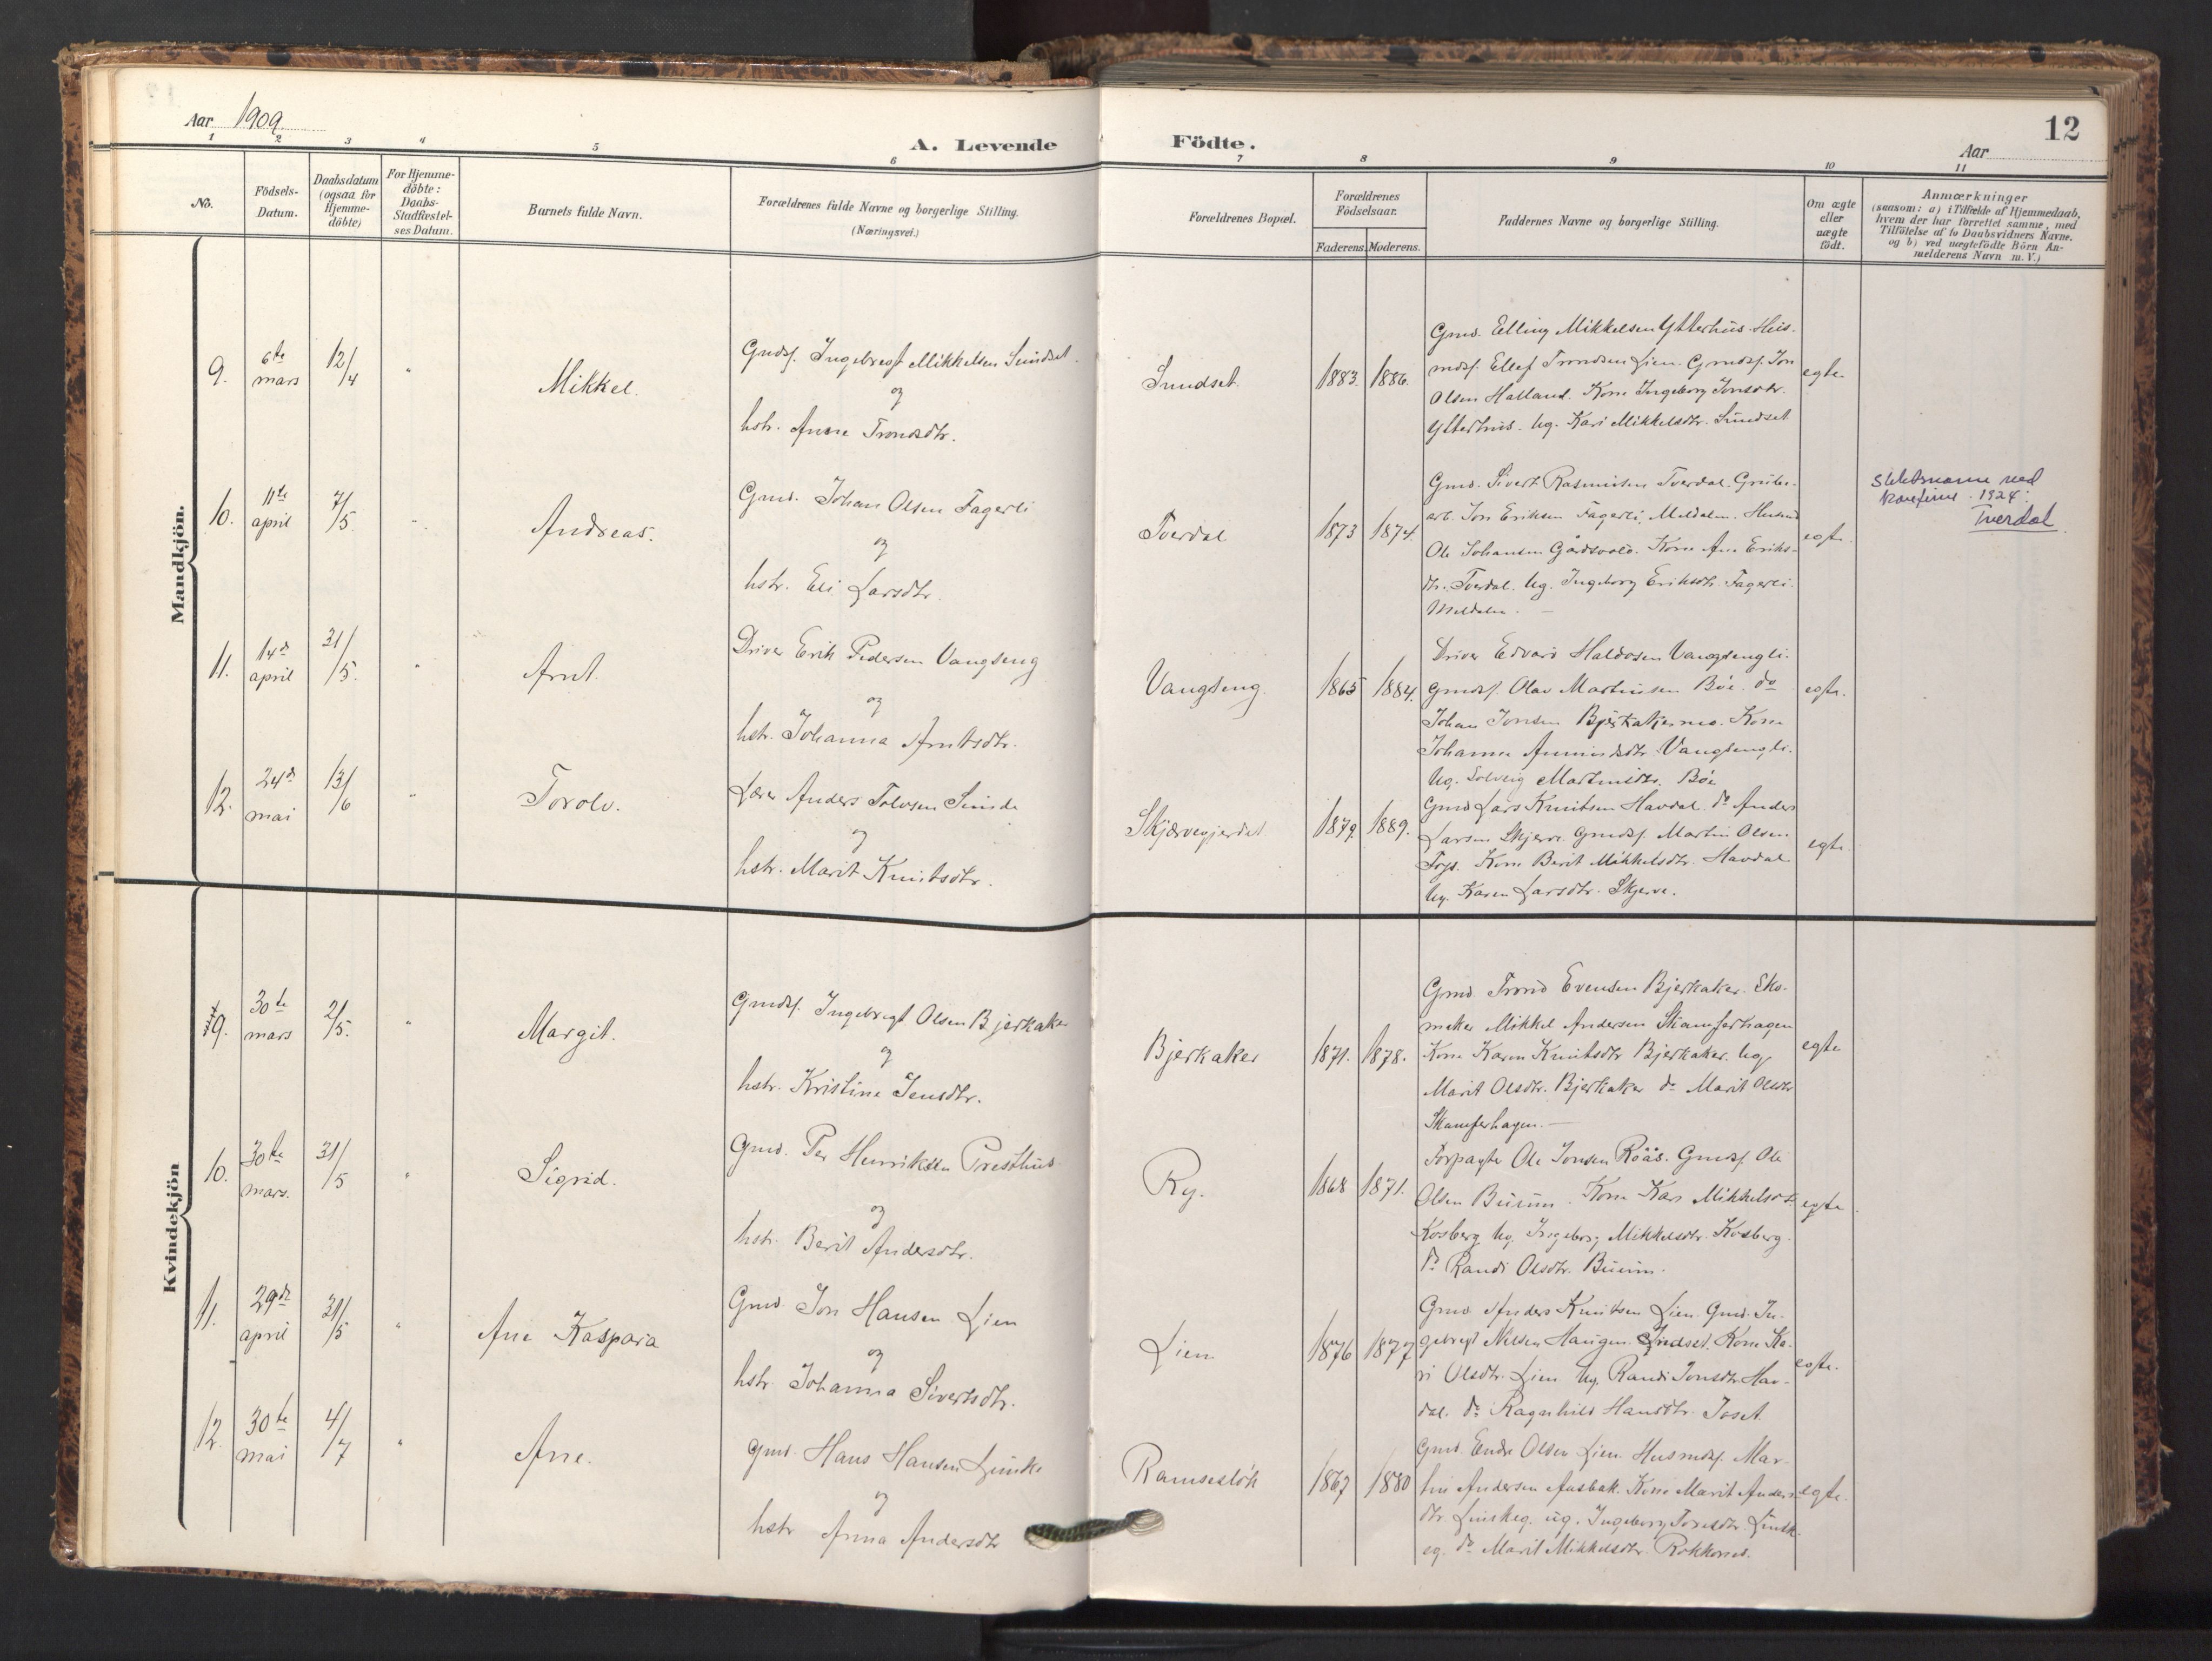 Aar 1909.
A. Levende Födte.
12
Aar
1 2 3 4 5 6 7 8 9 10 11
No.
Födsels-Datum.
Daabsdatum (ogsaa for Hjemme-döbte)
For Hjemme-döbte: Daabs-Stadfæstel-ses Datum.
Barnets fulde Navn.
Forældrenes fulde Navne og borgerlige Stilling. (Næringsvei.)
Forældrenes Bopæl.
Forældrenes Födselsaar.
Faderens. Moderens.
Faddernes Navne og borgerlige Stilling.
Om ægte eller uægte födt.
Anmærkninger
(saasom: a) i Tilfælde af Hjemmedaab,
hvem der har forrettet samme, med
Tilföielse af to Daabsvidners Navne.
og b) ved uægtefödte Börn An-
melderens Navn m. V.)
Mandkjön.
9. 6te mars 12/4 " Mikkel.
Gmdsf. Ingebregt Mikkelsen Sundset
og
hstr. Anne Trondsdtr.
Sundset. 1883. 1886.
Gmd. Elling Mikkelsen Ytterhus. Hus-
mdsf. Ellef Trondsen Lien. Gmdsf. Jon
Olsen Halland. Kone Ingeborg Jonsdtr.
Ytterhus. Ug. Kari Mikkelsdtr. Sundset
egte
10. 11te april 7/5 " Andreas.
Gmd. Johan Olsen Fagerli
og
hstr. Eli Larsdtr.
Tverdal 1873 1874.
Gmd. Sivert Rasmusen Tverdal. Grube-
arb. Jon Eriksen Fagerli, Meldalen. Husmd
Ole Johansen Gårdsvold. Kone Ane Eriks-
dtr. Tverdal. Ug. Ingeborg Eriksdtr. Fagerli.
Meldalen. —
egte.
Slektsnavn ved
konfirm. 1924:
Tverdal
11. 14de april 31/5. " Arnt.
Driver Erik Pedersen Vangseng
og
hstr. Johanna Arntsdtr.
Vangseng. 1865 1884.
Driver Edvard Haldosen Vangsengli.
Gmdsf. Olav Martinsen Böe. do
Johan Jonsen Bjerkakermo. Kone
Johanne Amundsdtr. Vangsengli.
Ug. Solveig Martinsdtr. Böe
egte.
12. 24de mai 13/6 " Torolv.
Lærer Anders Tolvsen Sunde
og
hstr. Marit Knutsdtr.
Skjærvegjerdet 1879. 1889.
Gmd Lars Knutsen Havdal. do Anders
Larsen Skjerve. Gmdsf. Martin Olsen
Kone Berit Mikkelsdtr. Havdal
Ug. Karen Larsdtr. Skjerve.
egte.
Kvindekjön
9. 30te mars 2/5. " Margit.
Gmdsf. Ingebregt Olsen Bjerkaker
og
hstr. Kristine Jensdtr.
Bjerkaker 1871. 1878.
Gmd. Trond Evensen Bjerkaker. Sko-
maker Mikkel Andersen Skamferhagen
Kone Karen Knutsdtr Bjerkaker. Ug
Marit Olsdtr. Bjerkaker do Marit Olsdtr
Skamferhagen. —
egte
10. 30te mars. 31/5 " Sigrid.
Gmd. Per Henriksen Presthus
og
hstr. Berit Andersdtr.
Ry. 1868 1871.
Forpagter Ole Jonsen Röås. Gmdsf Ole
Olsen Buum. Kone Kari Mikkelsdt.
Kosberg Ug. Ingeborg Mikkelsdtr. Kosberg.
do Randi Olsdtr. Buum.
egte.
11. 29de april 31/5 " Ane Kaspara
Gmd. Jon Hansen Lien
og
hstr Johanna Sivertsdtr.
Lien 1876 1877
Gmd. Anders Knutsen Lien. Gmd. In-
gebregt Nilsen Haugen Indset. Kone Ka-
ri Olsdtr. Lien Ug. Randi Jonsdtr. Hav-
dal. do Ragnhild Hansdtr. Joset
egte.
12. 30te mai 4/7 " Ane.
Gmd. Hans Hansen
og
hstr Anna Andersdtr
Ramseslök 1867 1880
Gmd. Endre Olsen Lien. Husmdsf. Mar-
tin Andersen Kone Marit Anders-
dtr. ug. Ingeborg
eg. do Marit Mikkelsdtr.
egte.